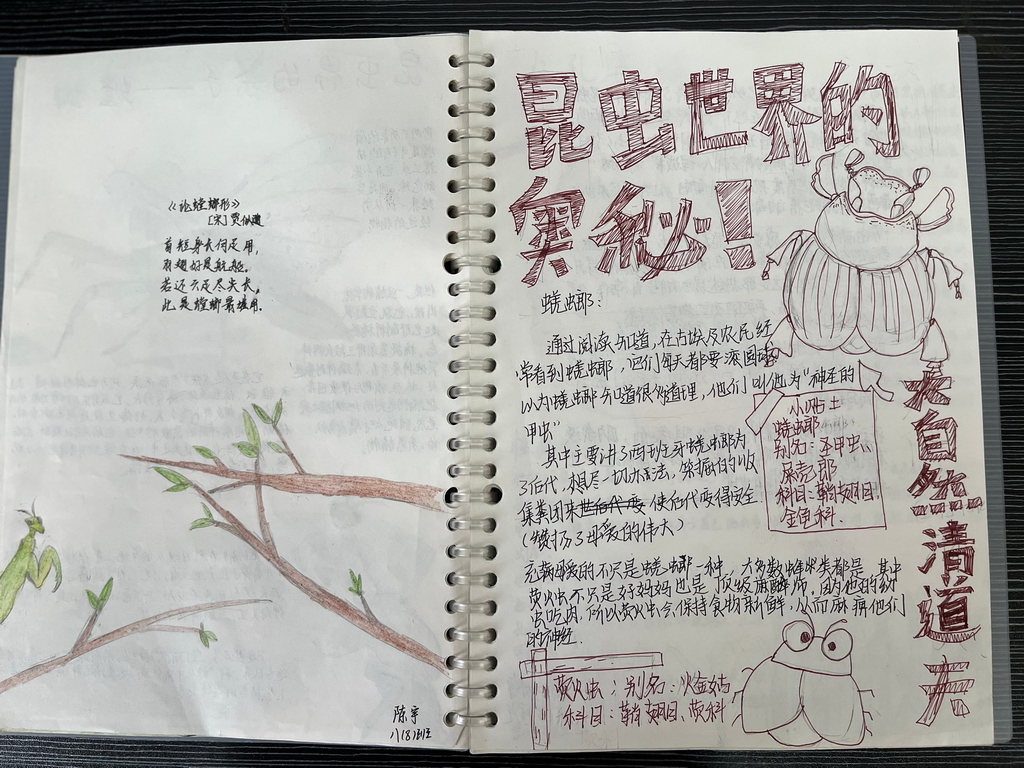 《论螳螂形》
[宋]贾似道
首短身长何足用,
有翅好是航船。
若还六足尽尖长,
此是螳螂最堪用.
陈宇
八(8)班
昆虫世界的
奥秘!
蜣螂:
通过阅读知道,在古埃及农民经
常看到蜣螂,它们每天都要滚圆球
以为蜣螂知道很多道理,他们叫他为“神圣的
甲虫”
其中主要讲了西班牙蜣螂为
了后代,想尽一切办法,笨拙的收
集粪团来世后代更 使后代变得安全
(赞扬了母爱的伟大)
充满母爱的不只是蜣螂一种,大多数蜂类都是,其中
萤火虫不只是好妈妈也是顶级麻醉师,因为他的幼
虫吃肉,所以萤火虫会保持食物新鲜,从而麻痹他们
的神经.
小贴士
蜣螂
别名:圣甲虫、
屎壳郎
科目:鞘翅目.
金龟科.
萤火虫:别名:火金姑
科目:鞘翅目、萤科
大自然清道夫